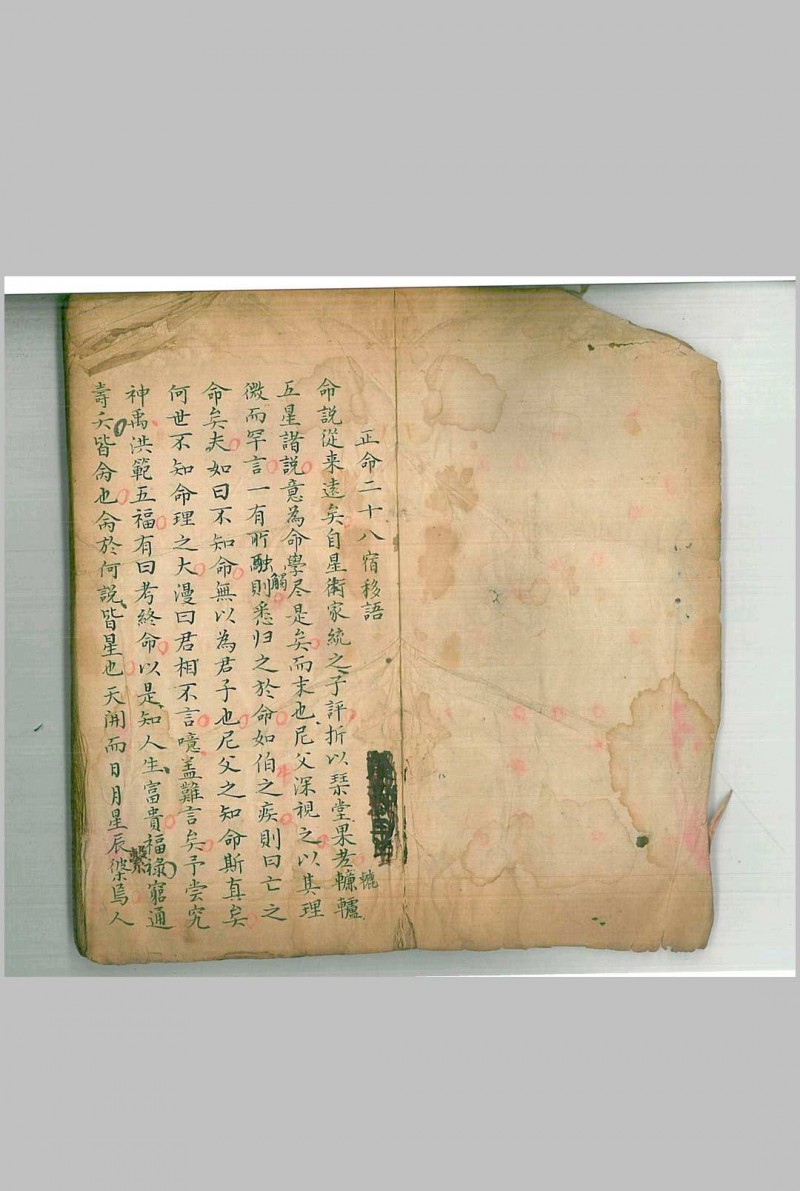 正命二十八宿移語
命說從来遠矣自星術家統之子評折以琹堂果老轆轤
五星諸説意為命學尽是矣而末也尼父深視之以其理
微而罕言一有所觸融則悉归之於命如伯之疾則曰亡之
命矣夫如曰不知命無以為君子也尼父之知命斯真矣
何世不知命理之大漫曰君相不言噫盖難言矣予尝究
神禹洪範五福有曰考終命以是知人生富貴福祿窮通
壽夭皆命也命於何說皆星也天開而日月星辰繫焉人